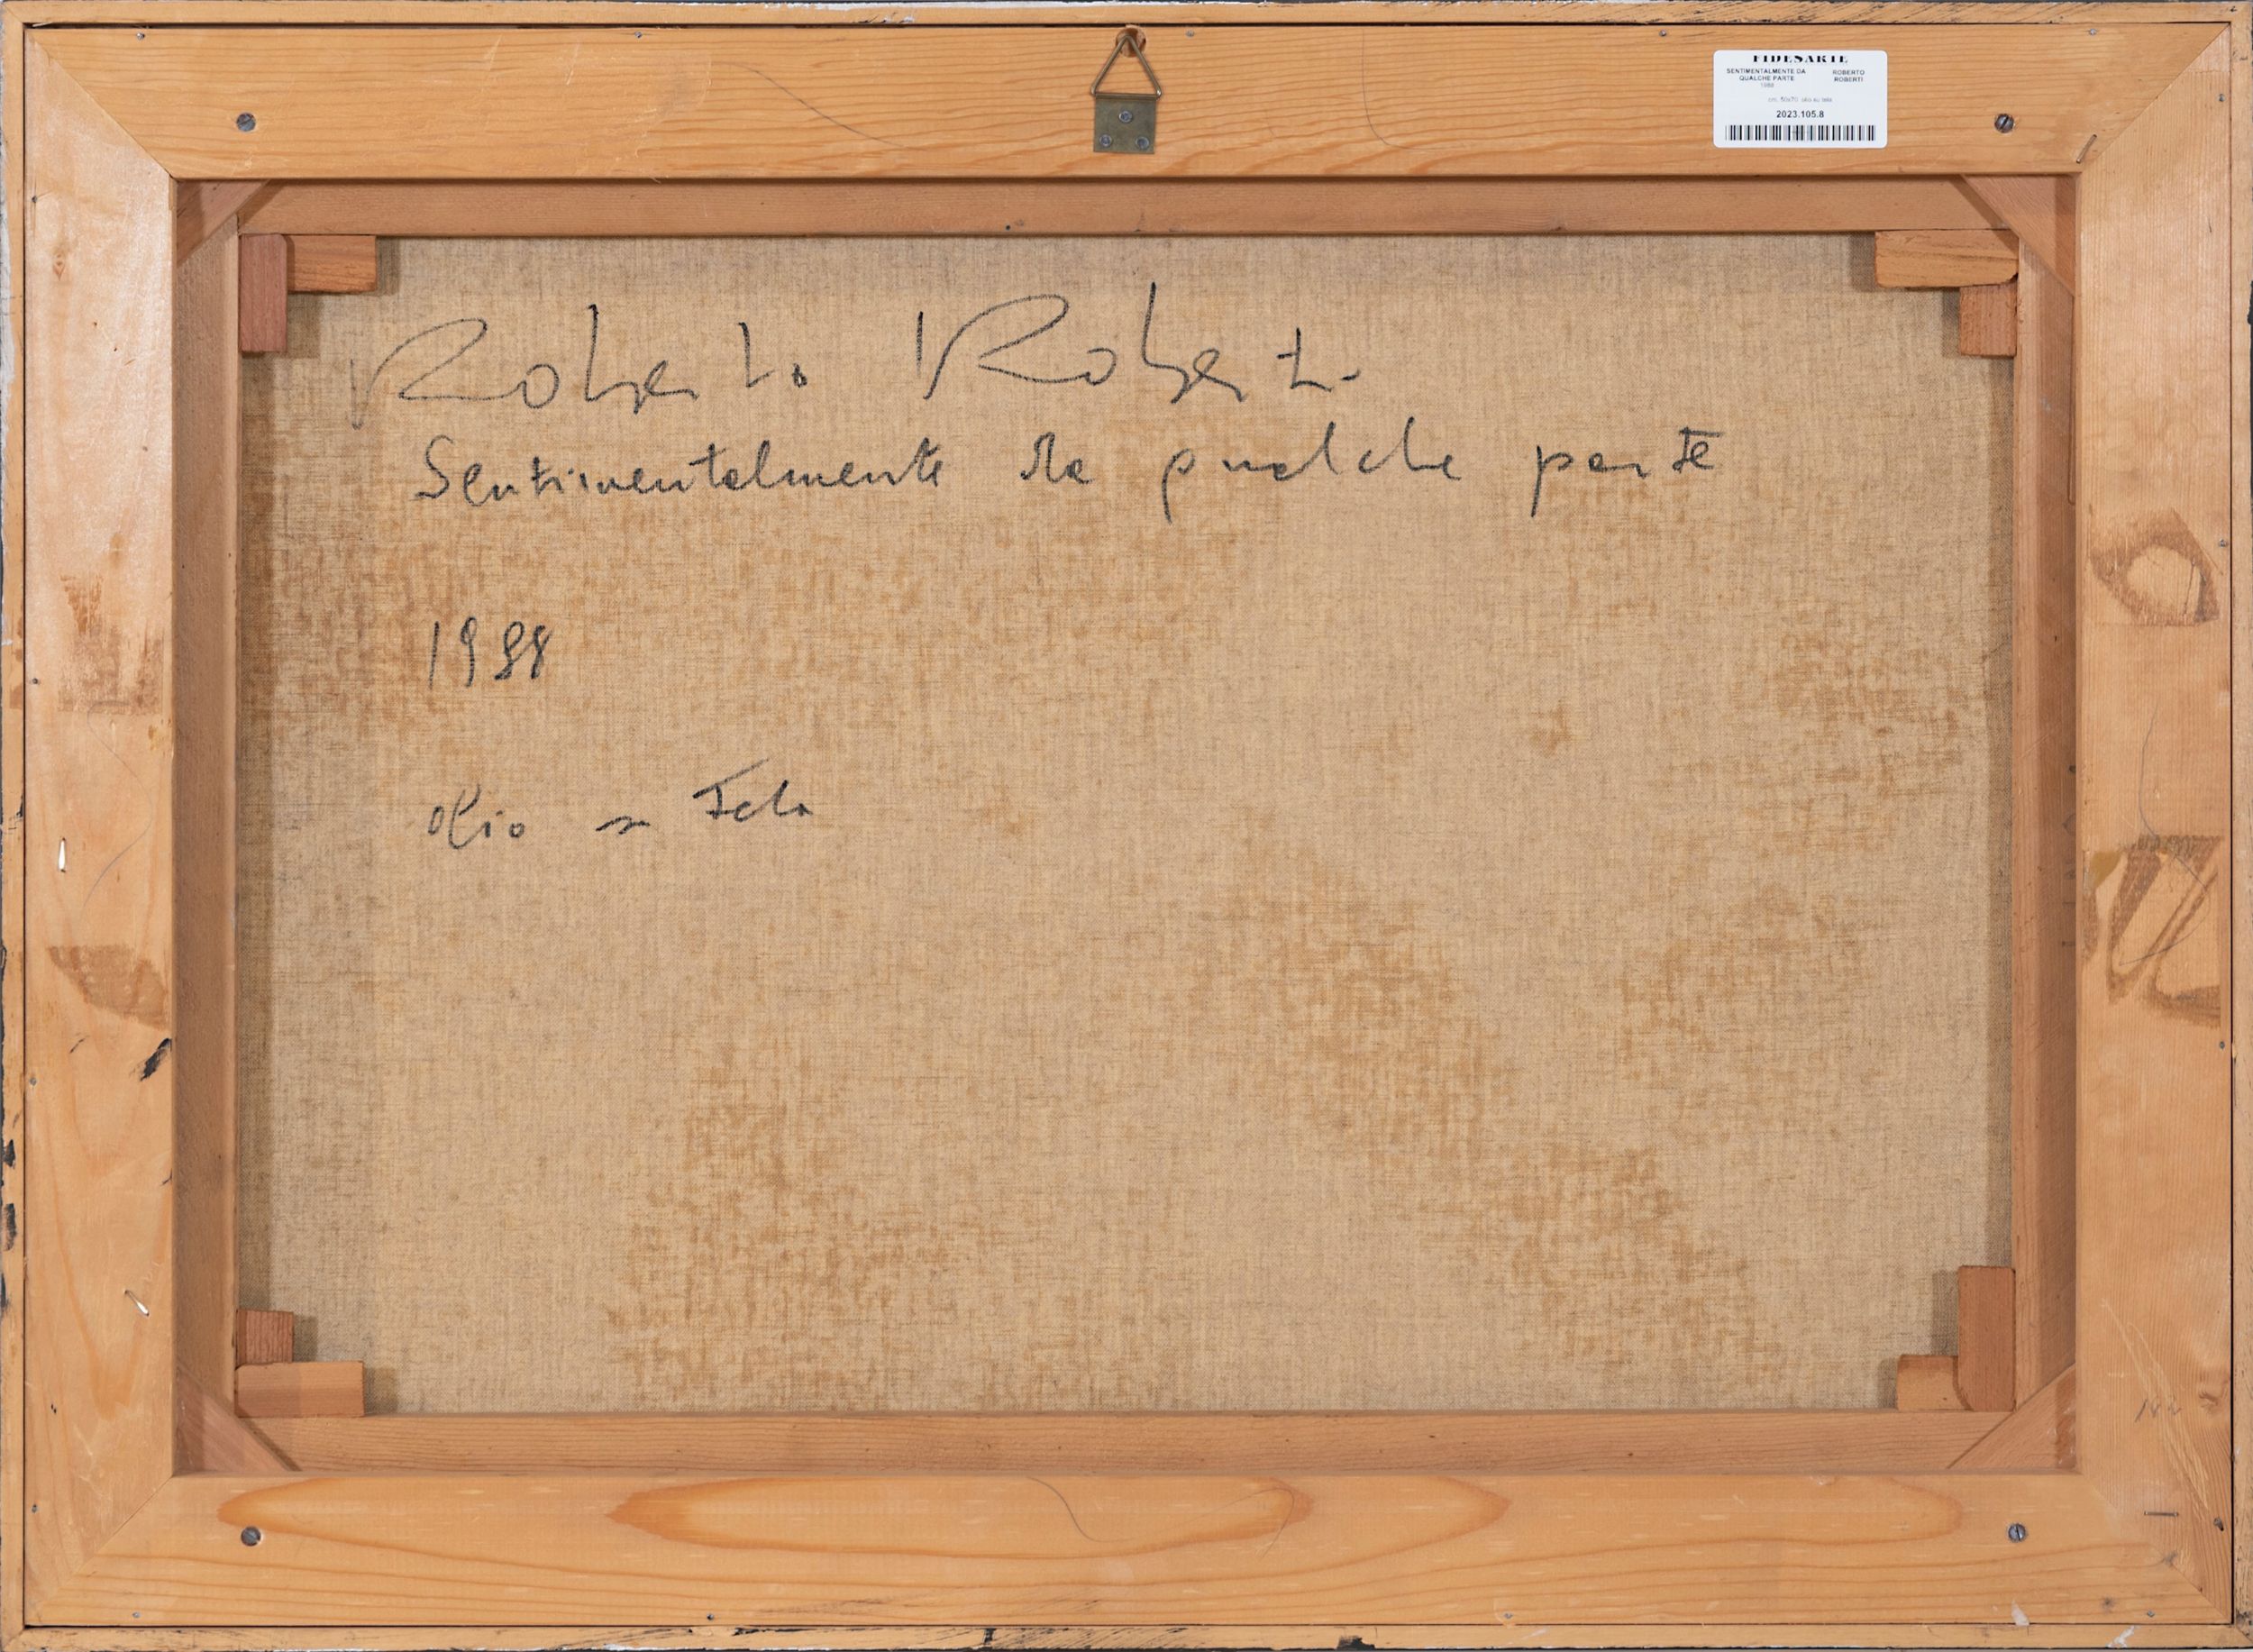 FIDESARTE
SENTIMENTALMENTE DA QUALCHE PARTE
ROBERTO ROBERTI
1988
cm. 50x70 olio su tela
2023.105.8
Roberto Roberti
Sentimentalmente da qualche parte
1988
olio su Tela